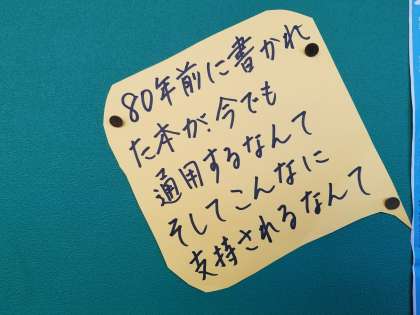 80年前に書かれ
た本が、今でも
通用するなんて
そしてこんなに
支持されるなんて